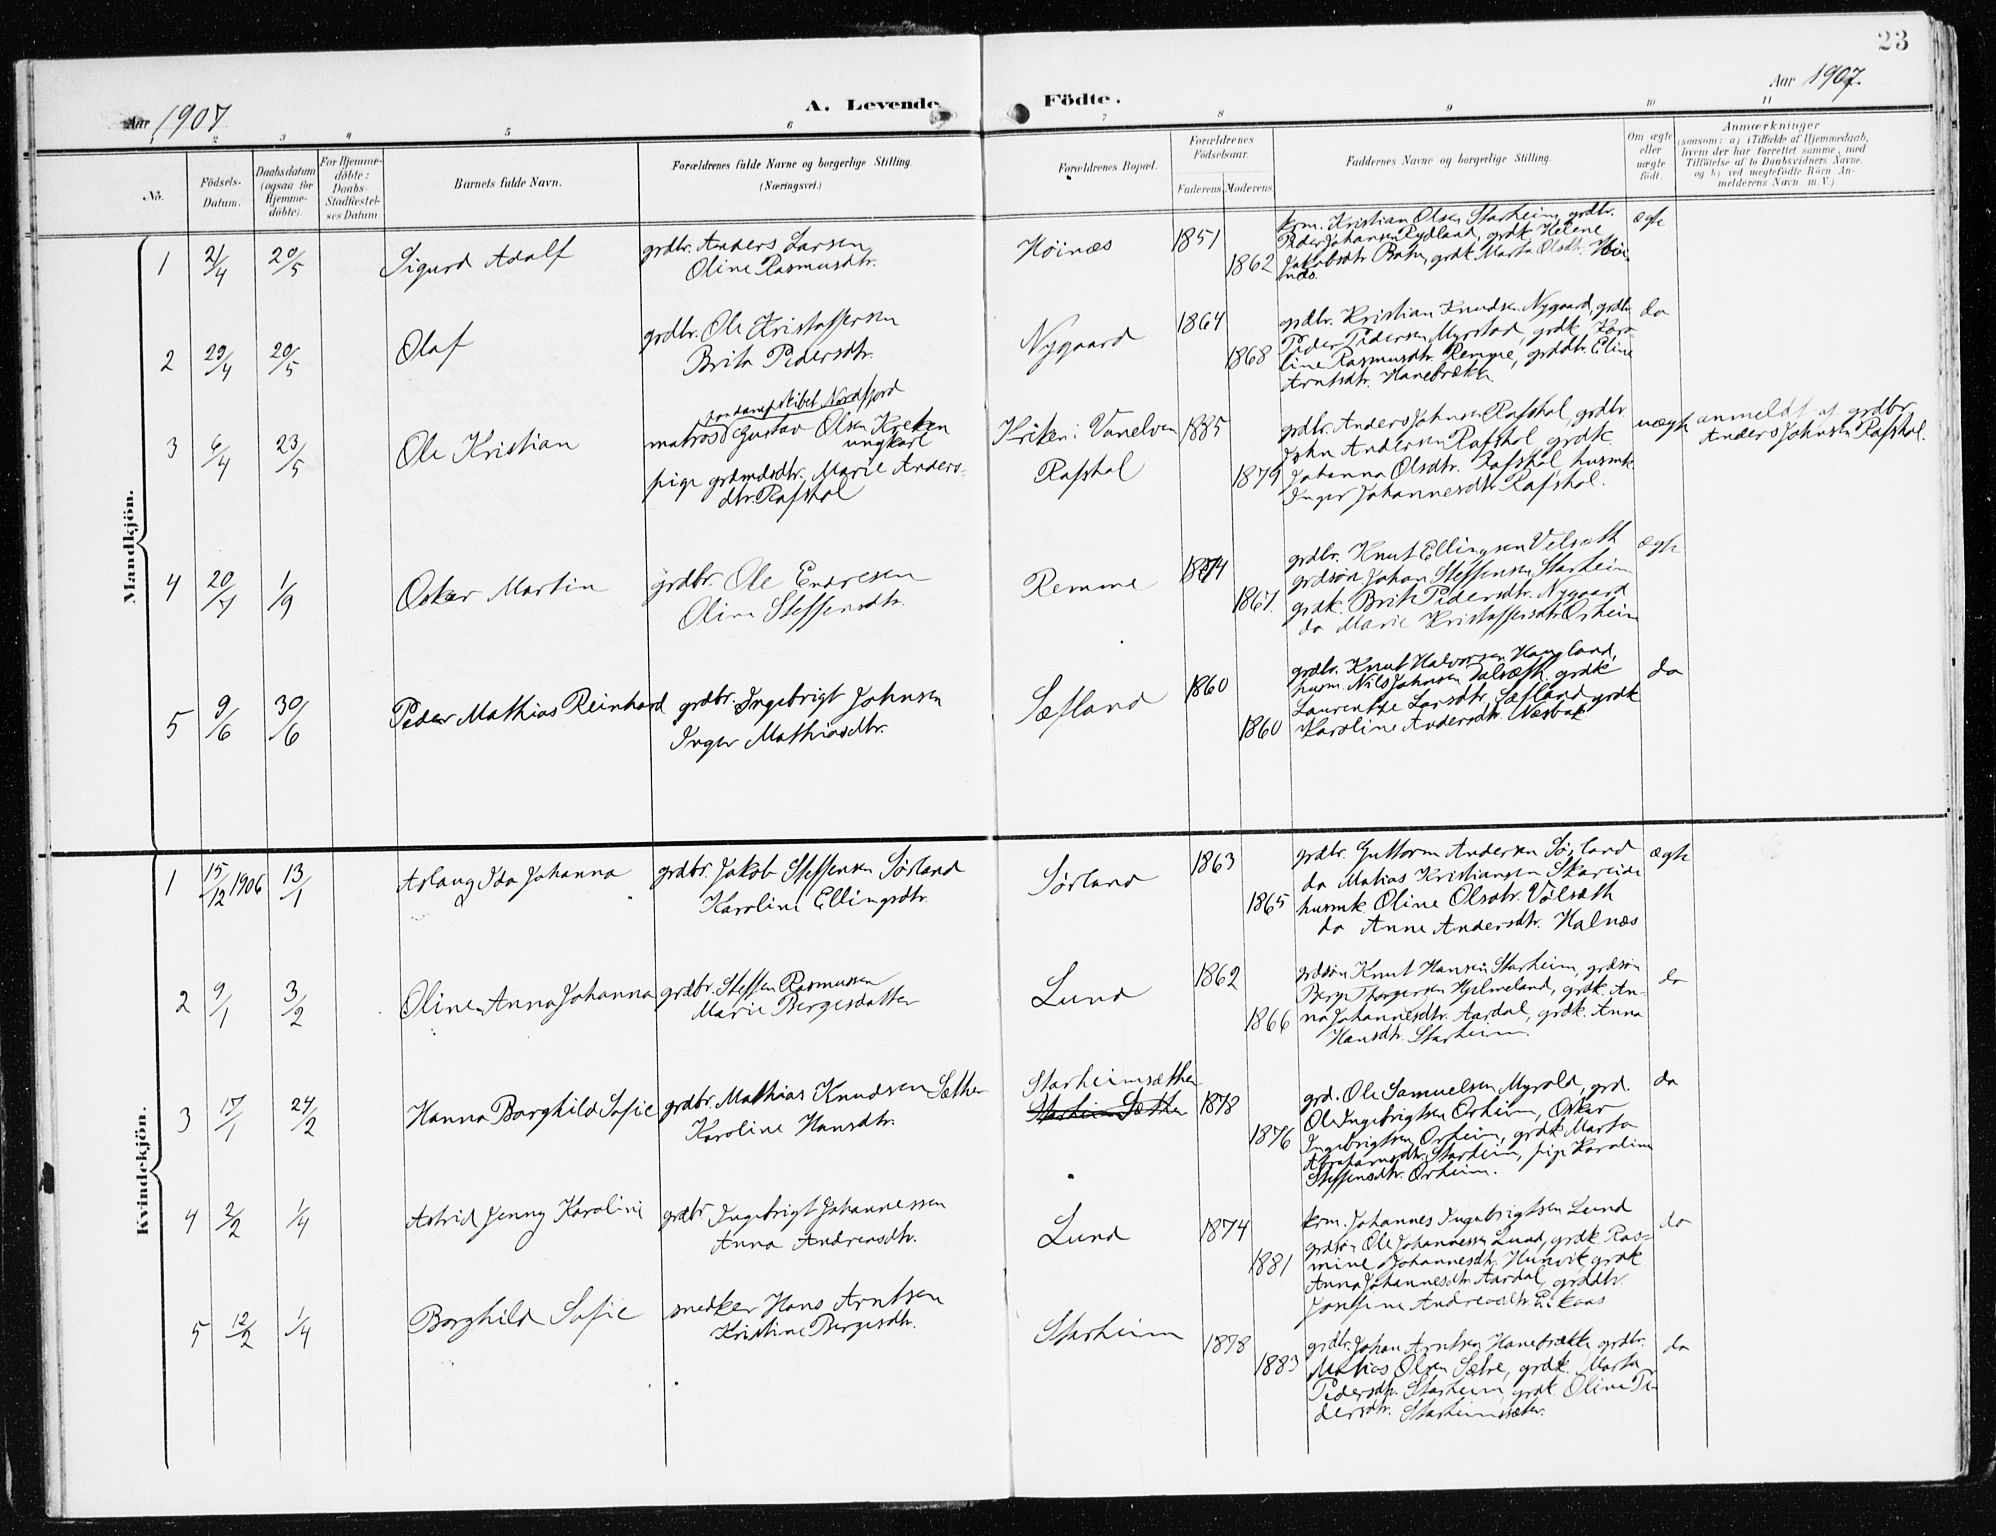 23
Aar 1907. A. Levende Födte. Aar 1907.
1 2 3 4 5 6 7 8 9 10 11
No.
Födsels-Datum.
Daabsdatum (ogsaa for Hjemme-döbte).
For Hjemme-döbte: Daabs-Stadfæstel-ses Datum.
Barnets fulde Navn.
Forældrenes fulde Navne og borgerlige Stilling.
(Næringsvei.)
Forældrenes Bopæl.
Forældrenes Födselsaar.
Faderens. Moderens.
Faddernes Navne og borgerlige Stilling.
Om ægte eller uægte födt.
Anmærkninger
(saasom: a) i Tilfælde af Hjemmedaab,
hvem der har forrettet samme, med
Tilföielse af to Daabsvidners Navne,
og b) ved uægtefödte Börn An-
melderens Navn m. V.)
Mandkjön.
1 21/4 20/5 Sigurd Adolf
grdbr. Anders Larsen
Oline Rasmusdtr.
Höinæs 1851 1862
krm. Kristian Olsen Starheim, grdbr.
Peder Johansen Rydland, grdk Helene
Jakobsdtr. grdk Marta Olsdtr. Höi-
næs.
ægte
2 29/4 20/5 Olaf
grdbr. Ole Kristoffersen
Brita Pedersdtr.
Nygaard 1864 1868
grdbr. Kristian Knudsen Nygaard, grdbr
Peder Pedersen Myrstad, grdk Karo-
line Rasmusdtr. Remme, grddtr. Eline
Arntsdtr. Hanebrekke
do
3 6/4 23/5 Ole Kristian
paa dampskibet Nordfjord
matros Gustav Olsen Kreken
ungkarl
pige grdmdsdtr. Marie Anders-
dtr. Rafshol
Kreken i Vanelven
Rafshol
1885 1879
grdbr. Anders Johnsen Rafshol, grdbr
John Andersen Rafshol, grdk
Johanna Olsdtr. Rafshol, husmk
Inger Johannesdtr Rafshol.
uægte
anmeldt af grdbr
Anders Johnsen Rafshol.
4 20/7 1/9 Oskar Martin
grdbr. Ole Endresen
Oline Steffensdtr.
Remme 1874 1867.
grdbr. Knut Ellingsen Velsæth
grdsön Johan Steffensen Starheim
grdk. Brite Pedersdtr. Nygaard
do Marie Kristoffersdtr Orheim
ægte
5 9/6 30/6 Peder Mathias Reinhard
grdbr. Ingebrigt Johnsen
Inger Mathiasdtr.
Sæfland 1860 1860
grdbr. Knut Halvorsen Haugland,
husm. Nils Johnsen Valsæth, grdk
Laurentse Larsdtr. Sæfland grdk
Karoline Andersdtr. Næsbak
do
Kvindekjön.
1 15/12 1906 13/1 Aslaug Ida Johanna
grdbr. Jakob Steffensen Sörland
Karoline Ellingsdtr.
Sörland 1863 1865
grdbr. Guttorm Andersen Sörland
do Matias Kristiansen Skareide
husmk. Oline Olsdtr. Völsæth
do Anne Andersdtr. Halnæs
ægte
2 9/1 3/2 Oline Anna Johanna
grdbr. Steffen Rasmussen
Marie Bergesdatter
Lund 1862 1866
grdsön Knut Hansen Starheim, grdsön
Berge Torgersen Hjelmeland, grdk. An-
na Johannesdtr. Aardal, grdk. Anna
Hansdtr. Starheim.
do
3 17/1 24/2 Hanna Borghild Sofie
grdbr. Mathias Knudsen Sæther
Karoline Hansdtr.
Starheimsæther
Starheim Sæther
1878 1876
grd. Ole Samuelsen Myrold, grd.
Ole Ingebrigtsen Orheim, Oskar
Ingebrigtsen Orheim, grdk Marta
Abrahamsdtr. Starheim, pige Karoline
Steffensdtr. Orheim.
do
4 2/2 1/4 Astrid Jenny Karoline
grdbr Ingebrigt Johannessen
Anna Andreasdtr.
Lund 1874 1881
krm. Johannes Ingebrigtsen Lund
grdsön Ole Johannessen Lund, grdk. Ras-
mine Johannesdtr. Hunvik, grdk
Anna Johannesdtr. Aardal, grddtr.
Josefine Andreasdtr. Eikaas
do
5 12/2 1/4 Borghild Sofie
snedker Hans Arntsen
Kristine Bergesdtr.
Starheim 1878 1883
grdbr. Johan Arntsen Hanebrekke grdbr.
Mathias Olsen Sætre, grdk. Marta
Pedersdtr. Starheim, grdk. Oline Pe-
dersdtr. Starheimsæter.
do